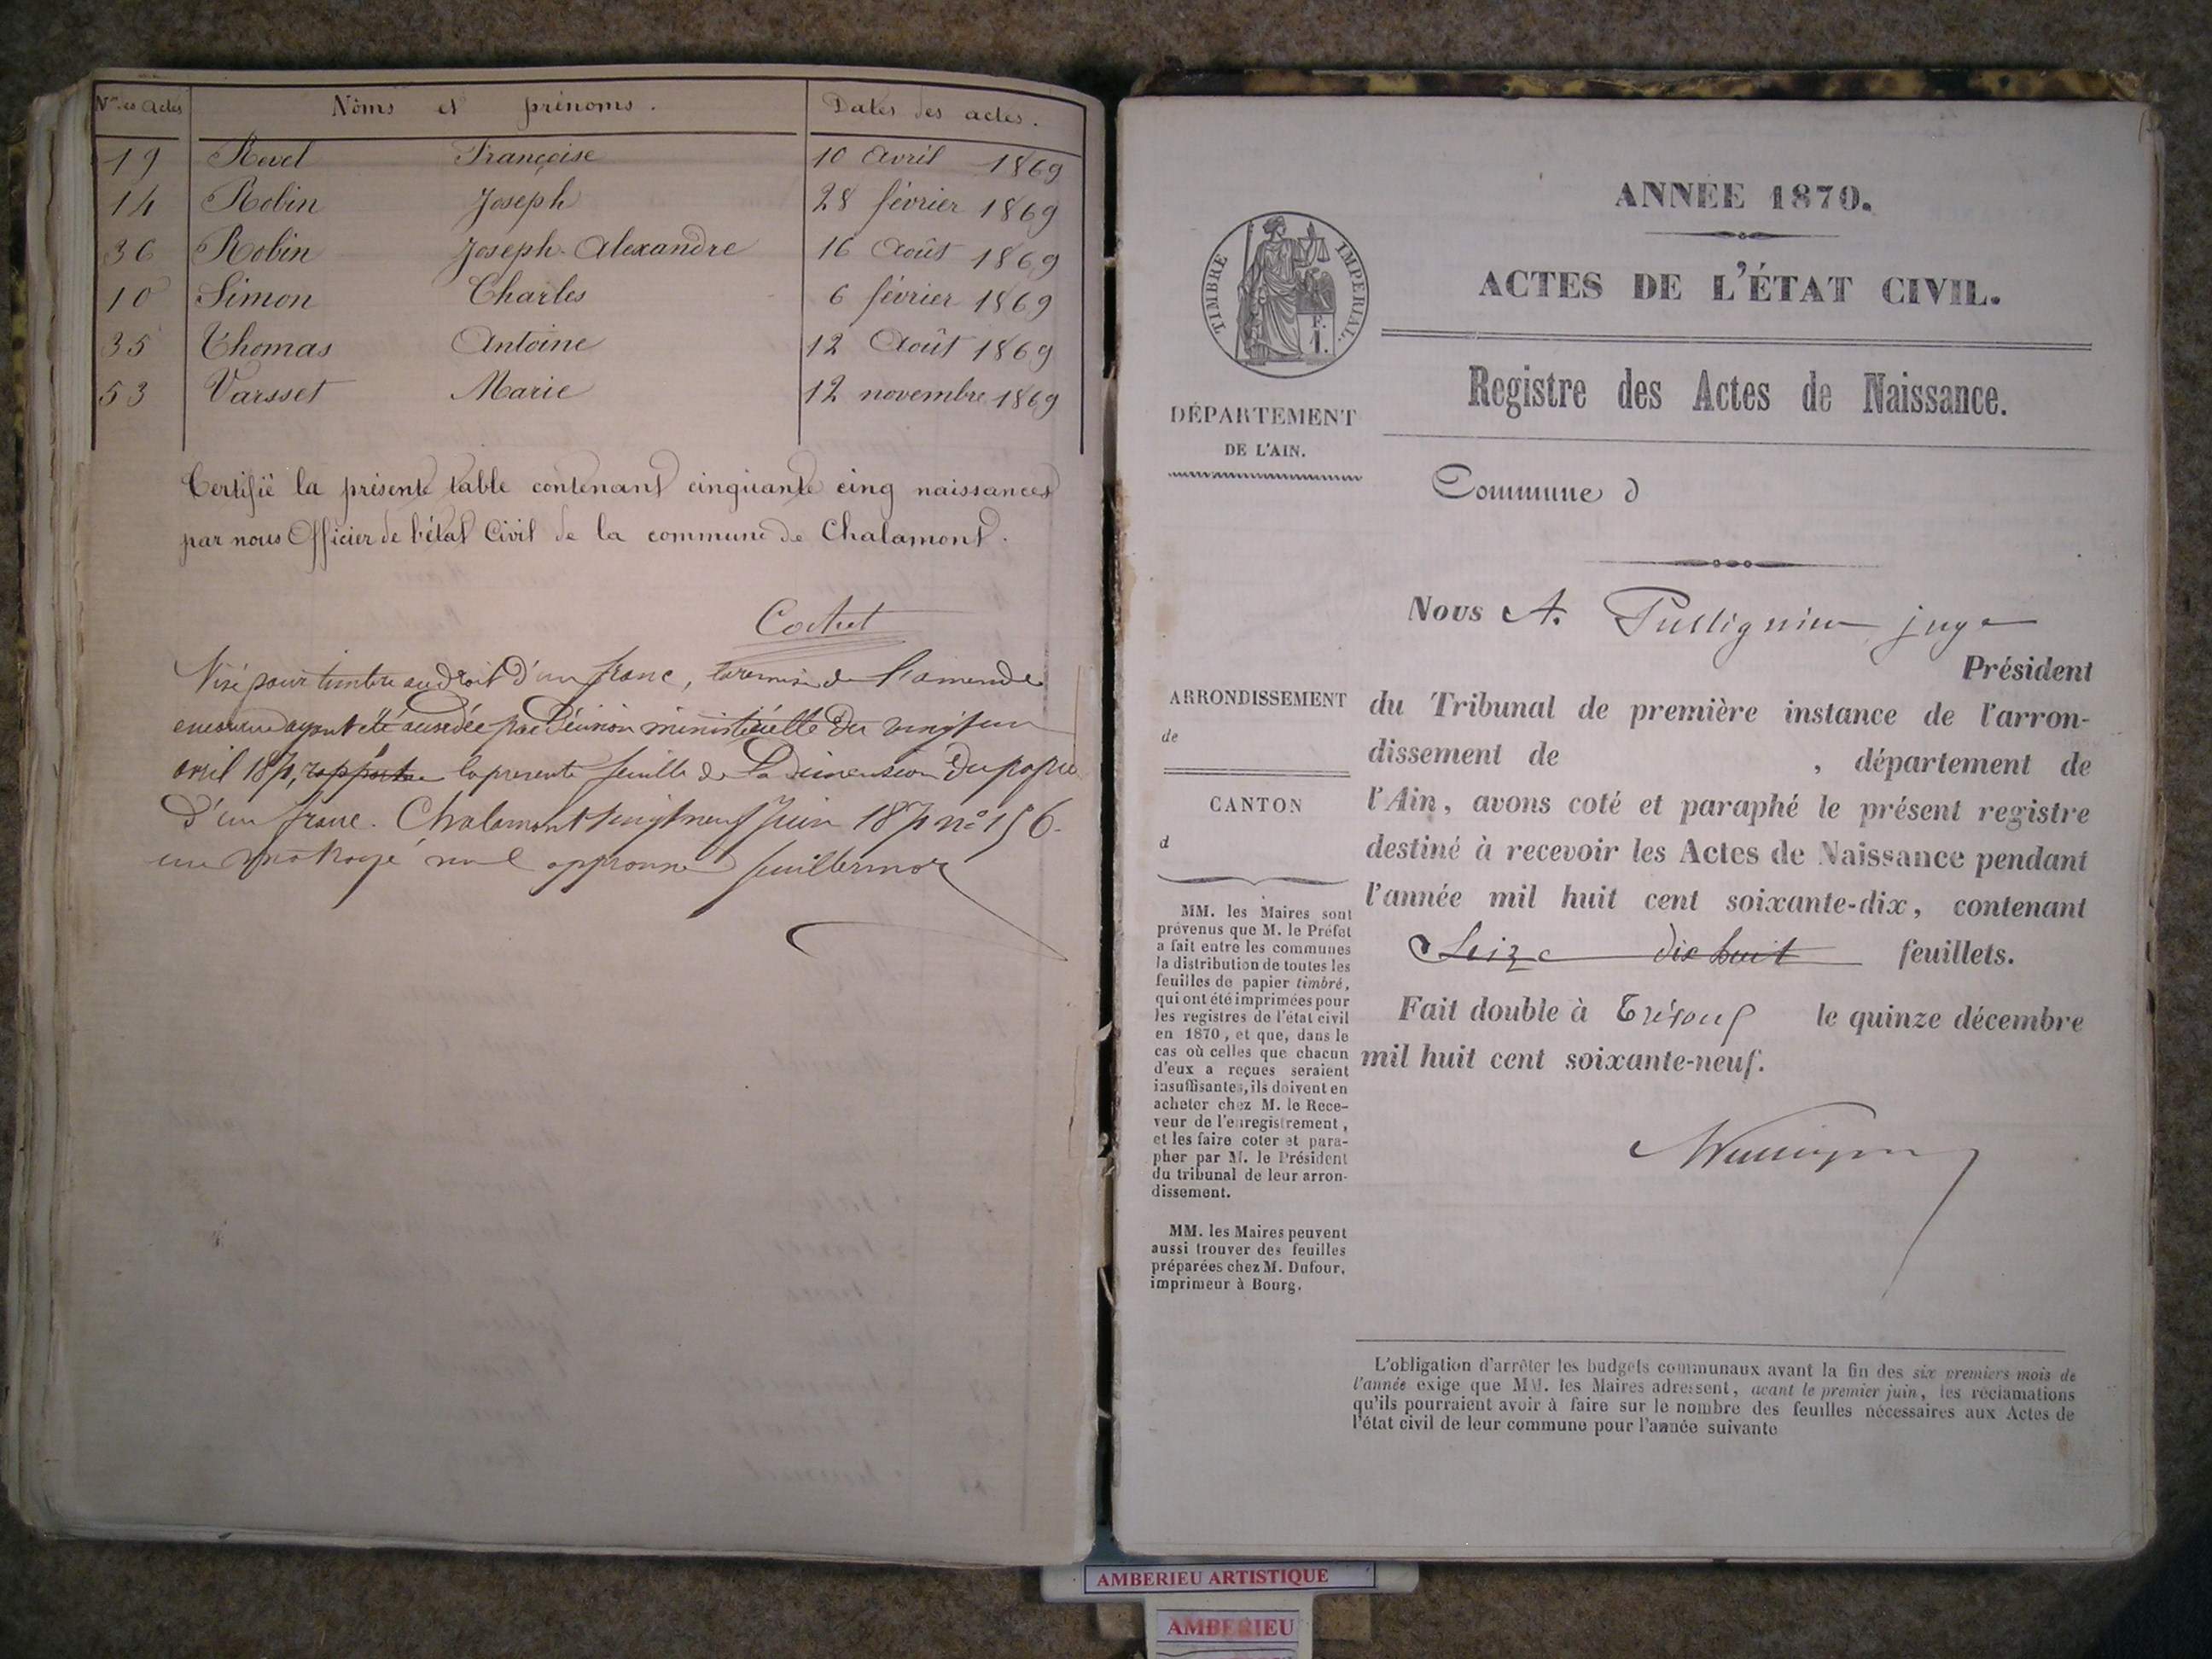 Nos des actes Noms et prénoms. Dates des actes.
19 Revel Françoise 10 Avril 1869
14 Robin Joseph 28 février 1869
36 Robin Joseph-Alexandre 16 Août 1869
10 Simon Charles 6 février 1869
35 Thomas Antoine 12 Août 1869
53 Varsset Marie 12 novembre 1869
Certifié la présente table contenant cinquante cinq naissances
par nous Officier de l'état Civil de la commune de Chalamont.
Visé pour timbre au droit d'un franc, la remise de l'amende
encourue ayant été accordée par décision ministérielle du vingt un
avril 187, la presente feuille de la dimension du papier
d'un franc. Chalamont vingt neuf juin 187 n° 156.
un mot rayé nul approuvé
ANNÉE 1870.
ACTES DE L'ÉTAT CIVIL.
Registre des Actes de Naissance.
TIMBRE IMPERIAL.
F.
1.
DÉPARTEMENT
DE L'AIN.
Commune d
Nous A. juge
Président
ARRONDISSEMENT
de
CANTON
d
du Tribunal de première instance de l'arron-
dissement de , département de
l'Ain, avons coté et paraphé le présent registre
destiné à recevoir les Actes de Naissance pendant
l'année mil huit cent soixante-dix, contenant
Seize dix huit feuillets.
Fait double à Trévoux le quinze décembre
mil huit cent soixante-neuf.
MM. les Maires sont
prévenus que M. le Préfet
a fait entre les communes
la distribution de toutes les
feuilles de papier timbré,
qui ont été imprimées pour
les registres de l'état civil
en 1870, et que, dans le
cas où celles que chacun
d'eux a reçues seraient
insuffisantes, ils doivent en
acheter chez M. le Rece-
veur de l'enregistrement,
et les faire coter et para-
pher par M. le Président
du tribunal de leur arron-
dissement.
MM. les Maires peuvent
aussi trouver des feuilles
préparées chez M. Dufour,
imprimeur à Bourg.
L'obligation d'arrêter les budgets communaux avant la fin des six premiers mois de
l'année exige que MM. les Maires adressent, avant le premier juin, les réclamations
qu'ils pourraient avoir à faire sur le nombre des feuilles nécessaires aux Actes de
l'état civil de leur commune pour l'année suivante
AMBERIEU ARTISTIQUE
AMBERIEU